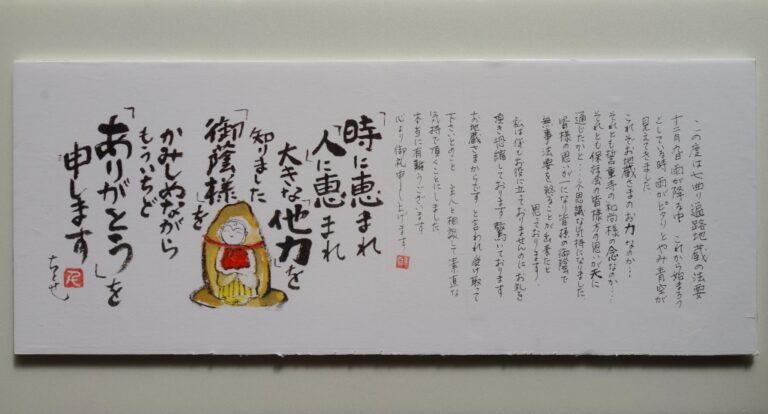 この度は七曲り遍路地蔵の法要
十二月九日雨が降る中 これから始まろう
としている時 雨がピタリとやみ青空が
見えてきました
これぞお地蔵さまのお力なのか…
それとも重寺の和尚様の念なのか…
それとも保存会の皆様方の思いが天に
通じたかと…不思議な気持になりました
皆様の思いが一つになり皆様の御蔭で
無事法要を終ることが出来たと
思っております。
私は何もお役に立ておりませんのにお礼を
頂き恐縮しております 驚いております
お地蔵さまからです と言われ 受け取って
下さいとのこと 主人と相談して素直な
気持で頂くことにしました
本当に有難うございます
心より御礼申し上げます。
「時に恵まれ
「人に恵まれ
大きな「他力」を
知りました
「御蔭様」を
かみしめながら
もういちど
「ありがとう」を
申します
ちとせ